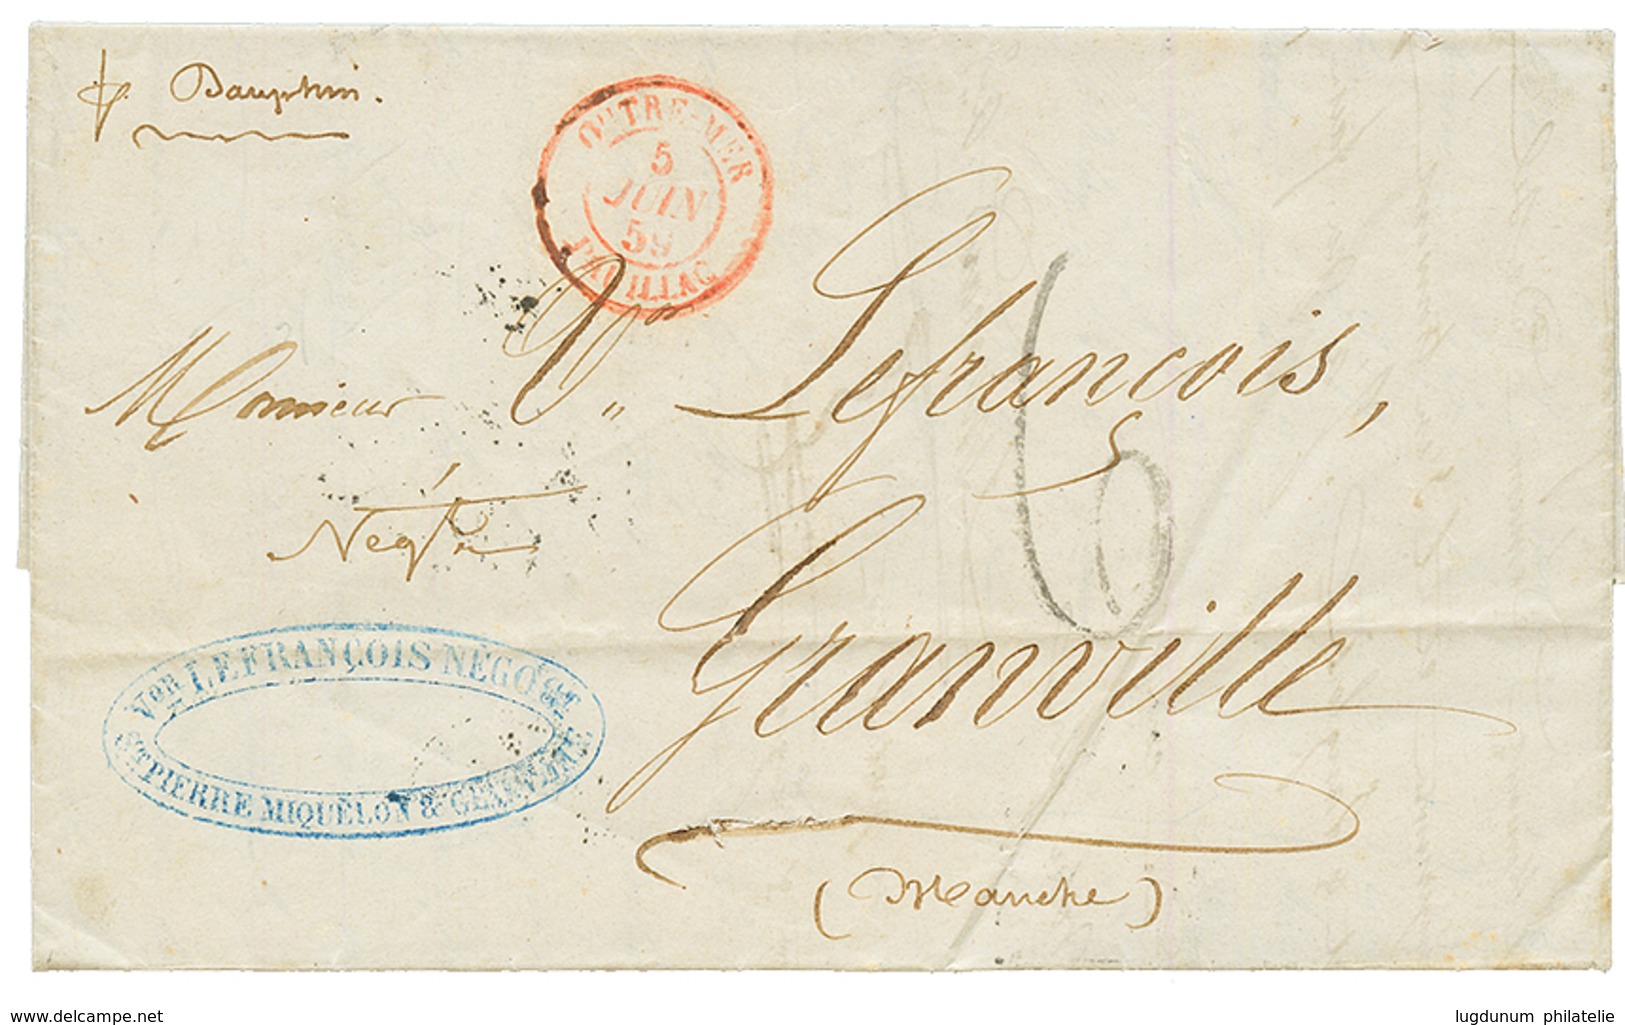 p. Dauphin.
OUTRE-MER
5
JUIN
59
PAUILLAC
Monsieur Vor Lefrançois,
Négt
6
Granville
(Manche)
Vor LEFRANÇOIS NÉGOCt
St PIERRE MIQUELON & GRANVILLE
www.delcampe.net
lugdunum philatelie